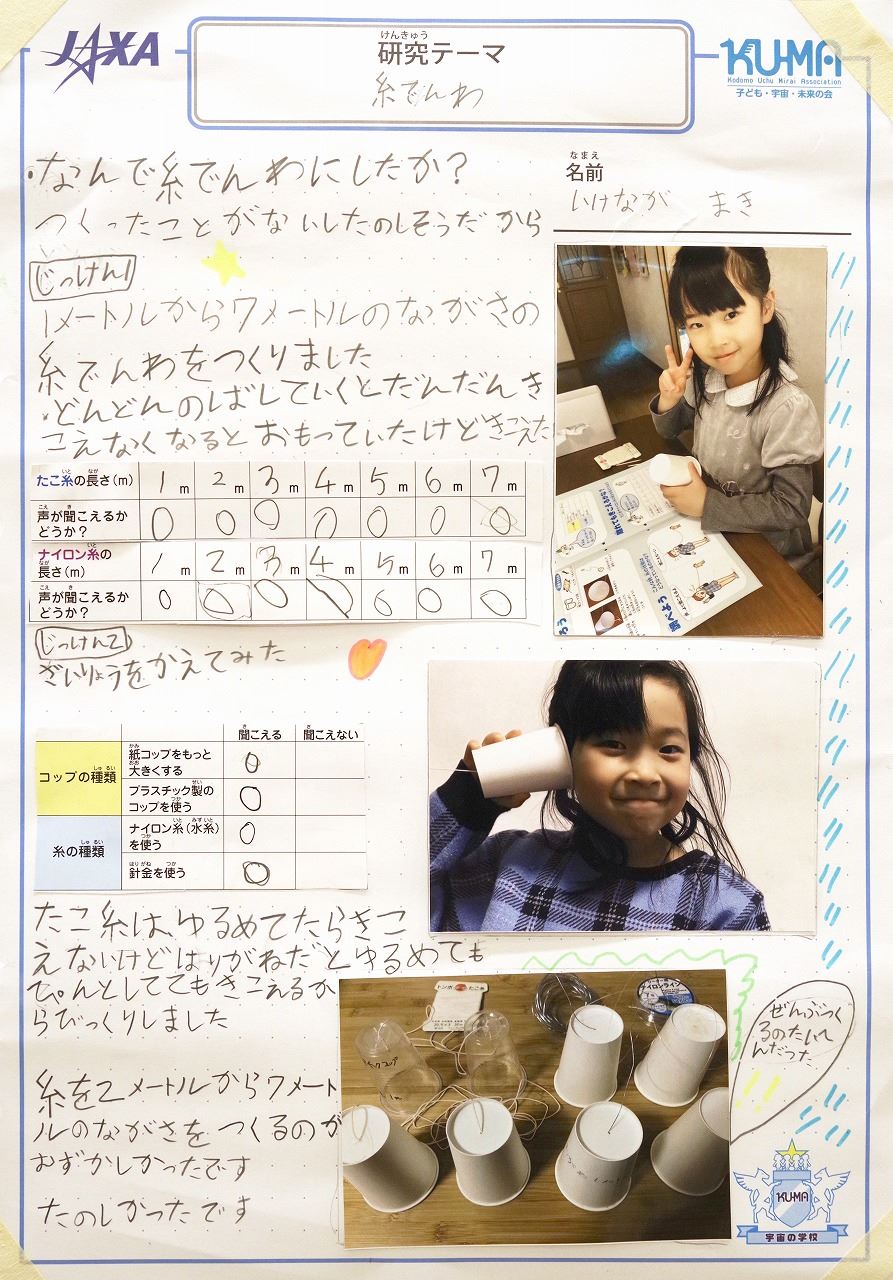 JAXA
けんきゅう
研究テーマ
糸でんわ
KU-MA
Kodomo Uchu Mirai Association
子ども・宇宙・未来の会
・なんで糸でんわにしたか？
つくったことがないしたのしそうだから
なまえ
名前
いけなが まき
じっけん1
1メートルから7メートルのながさの
糸でんわをつくりました
どんどんのばしていくとだんだんき
こえなくなるとおもっていたけどきこえた
たこ糸の長さ(m) 1m 2m 3m 4m 5m 6m 7m
声が聞こえるかどうか？ ○ ○ ○ ○ ○ ○ ○
ナイロン糸の長さ(m) 1m 2m 3m 4m 5m 6m 7m
声が聞こえるかどうか？ ○ ○ ○ ○ ○ ○ ○
じっけん2
ざいりょうをかえてみた
聞こえる 聞こえない
コップの種類
紙コップをもっと大きくする ○
プラスチック製のコップを使う ○
糸の種類
ナイロン糸(水糸)を使う ○
針金を使う ○
たこ糸は、ゆるめてたらきこ
えないけどはりがねだとゆるめても
ぴんとしててもきこえるか
らびっくりしました
糸を2メートルから7メート
ルのながさをつくるのが
むずかしかったです
たのしかったです
調べよう
トンボ たこ糸
ナイロンライン
ぜんぶつく
るのたいへ
んだった
!!
KU-MA
宇宙の学校